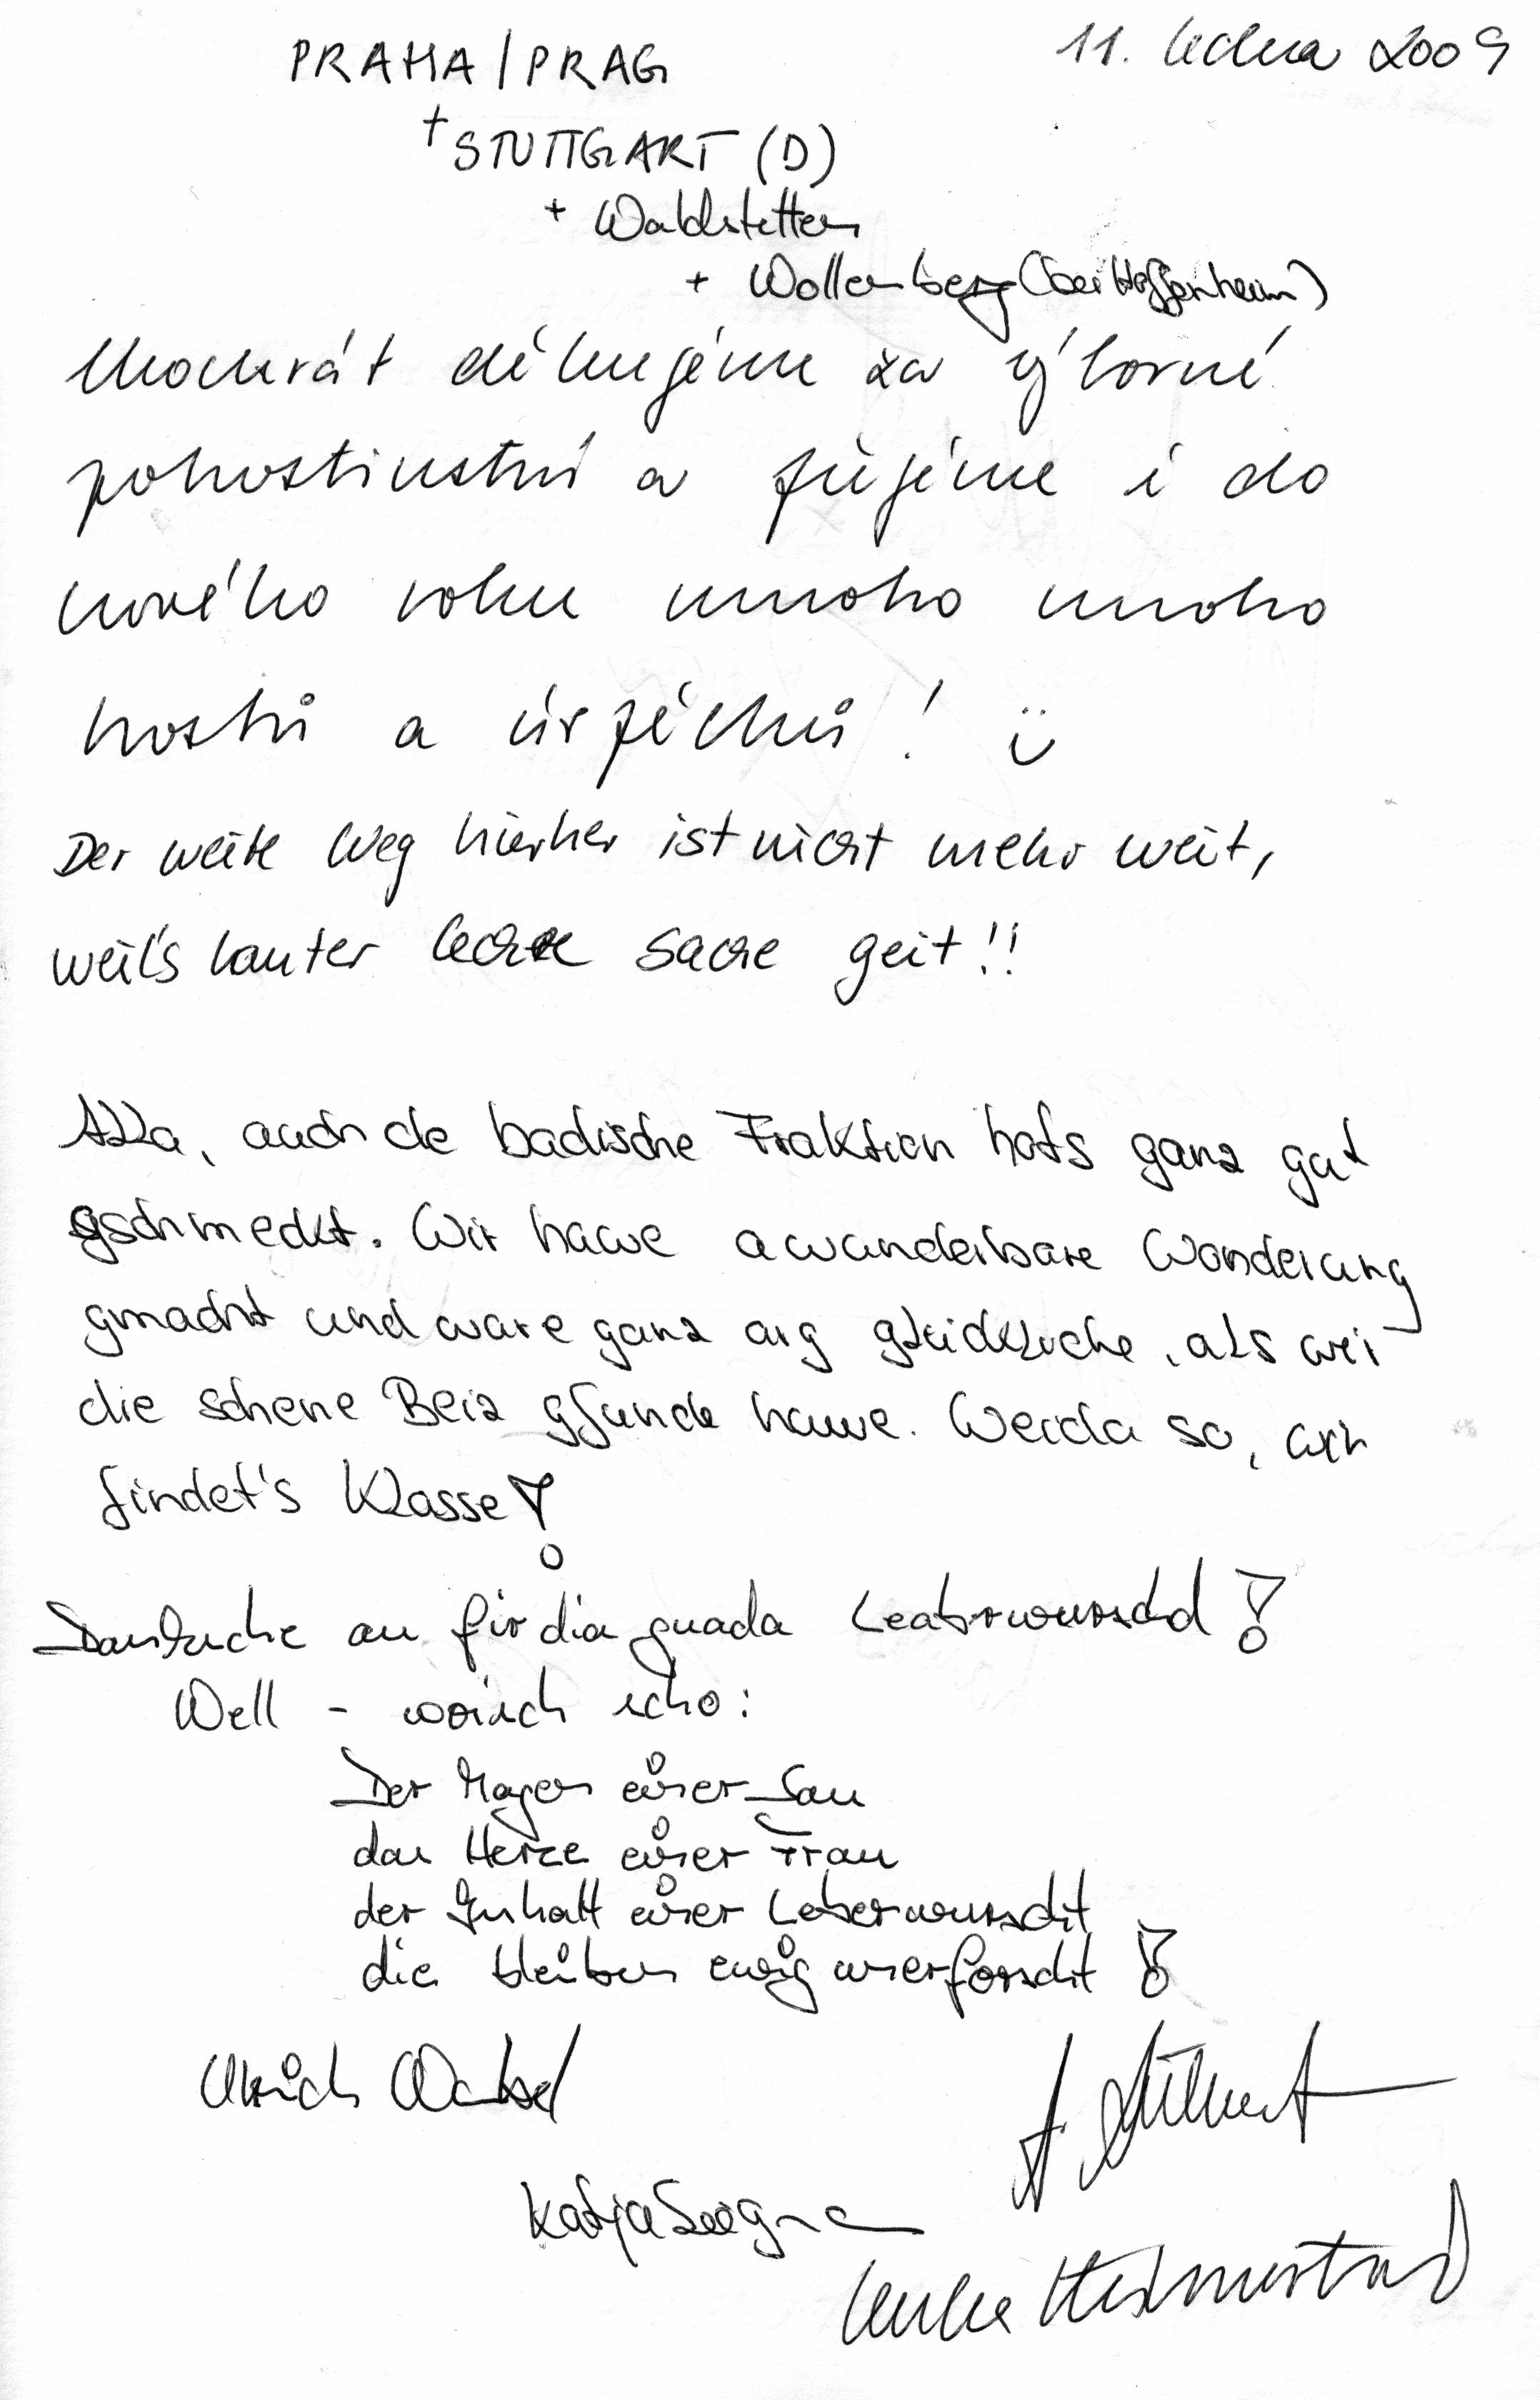 PRAHA / PRAG
11. ledna 2009
+ STUTTGART (D)
+ Waldstetten
+ Wollenberg (bei Hoffenheim)
Mockrát děkujeme za výborné
pohostinství a přejeme i do
nového roku mnoho mnoho
hostů a úspěchů! ☺
Der weite Weg hierher ist nicht mehr weit,
weil's lauter leckre Sache geit!!
Alla, auch de badische Fraktion hats ganz gut
gschmeckt. Wir hawe a wunderbare Wanderung
gmacht und ware ganz arg glücklich, als wir
die schene Beiz gfunde hawe. Weida so, wir
findet's Klasse!
Dankache au fir dia guada Leabrwurschd!
Well - woisch scho:
Der Magen einer Sau
das Herze einer Frau
der Inhalt einer Leberwurscht
die bleiben ewig unerforscht!
Ulrich
Katja